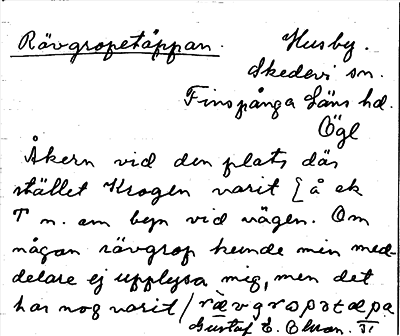 Rävgropetäppan.
Husby.
Skedevi sn.
Finspånga Läns hd.
Ögl
Åkern vid den plats där
stället Krogen varit [å ek
T n. om byn vid vägen. Om
någon rävgrop kunde min med-
delare ej upplysa mig, men det
har nog varit / rævgropətæpa
Gustaf E. Olsson.